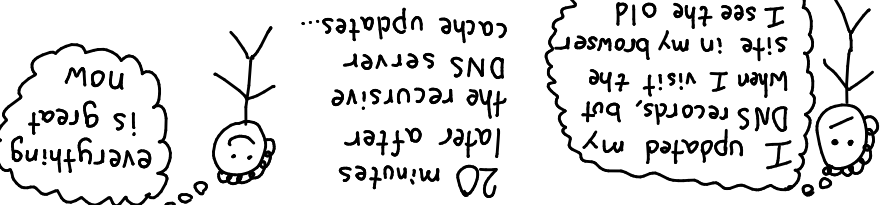 I updated my
DNS records, but
when I visit the
site in my browser
I see the old
20 minutes
later after
the recursive
DNS server
cache updates...
everything
is great
now